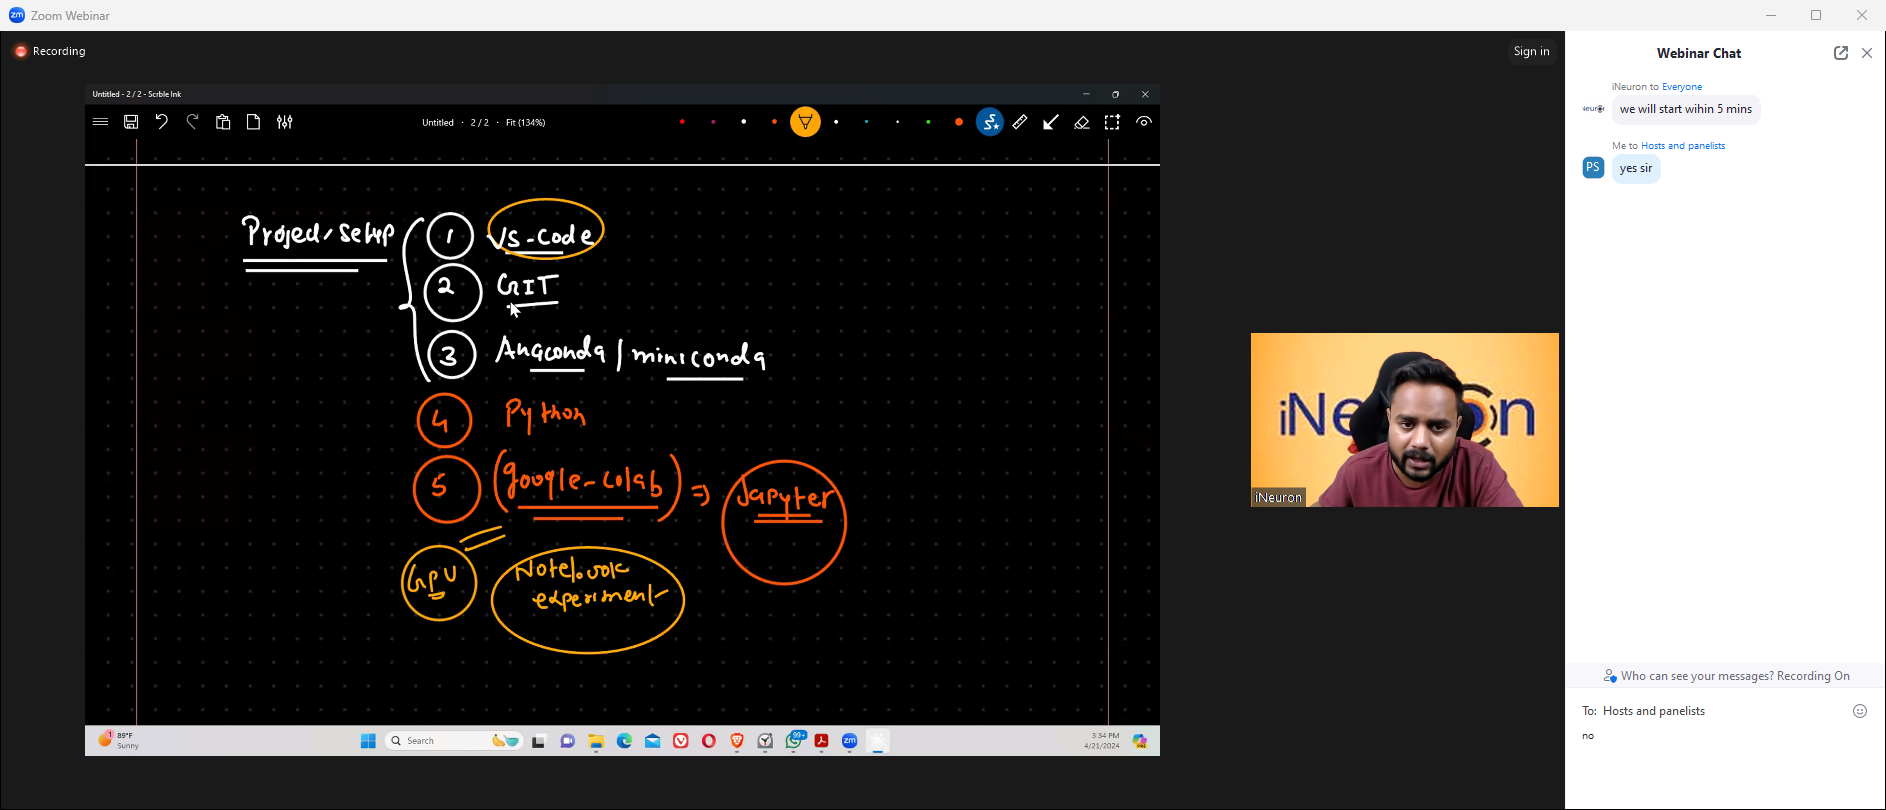 Zoom Webinar
Recording
Sign in
Untitled - 2 / 2 - Scrble Ink
Untitled · 2 / 2 · Fit (134%)
Project/Setup
1 Vs-Code
2 GIT
3 Anaconda / miniconda
4 Python
5 (google-colab) => Jupyter
GPU
Notebook
experiment
iNeuron
iNeuron
1
89°F
Sunny
Search
99+
zm
3:34 PM
4/21/2024
Webinar Chat
iNeuron to Everyone
we will start wihin 5 mins
Me to Hosts and panelists
PS
yes sir
Who can see your messages? Recording On
To: Hosts and panelists
no